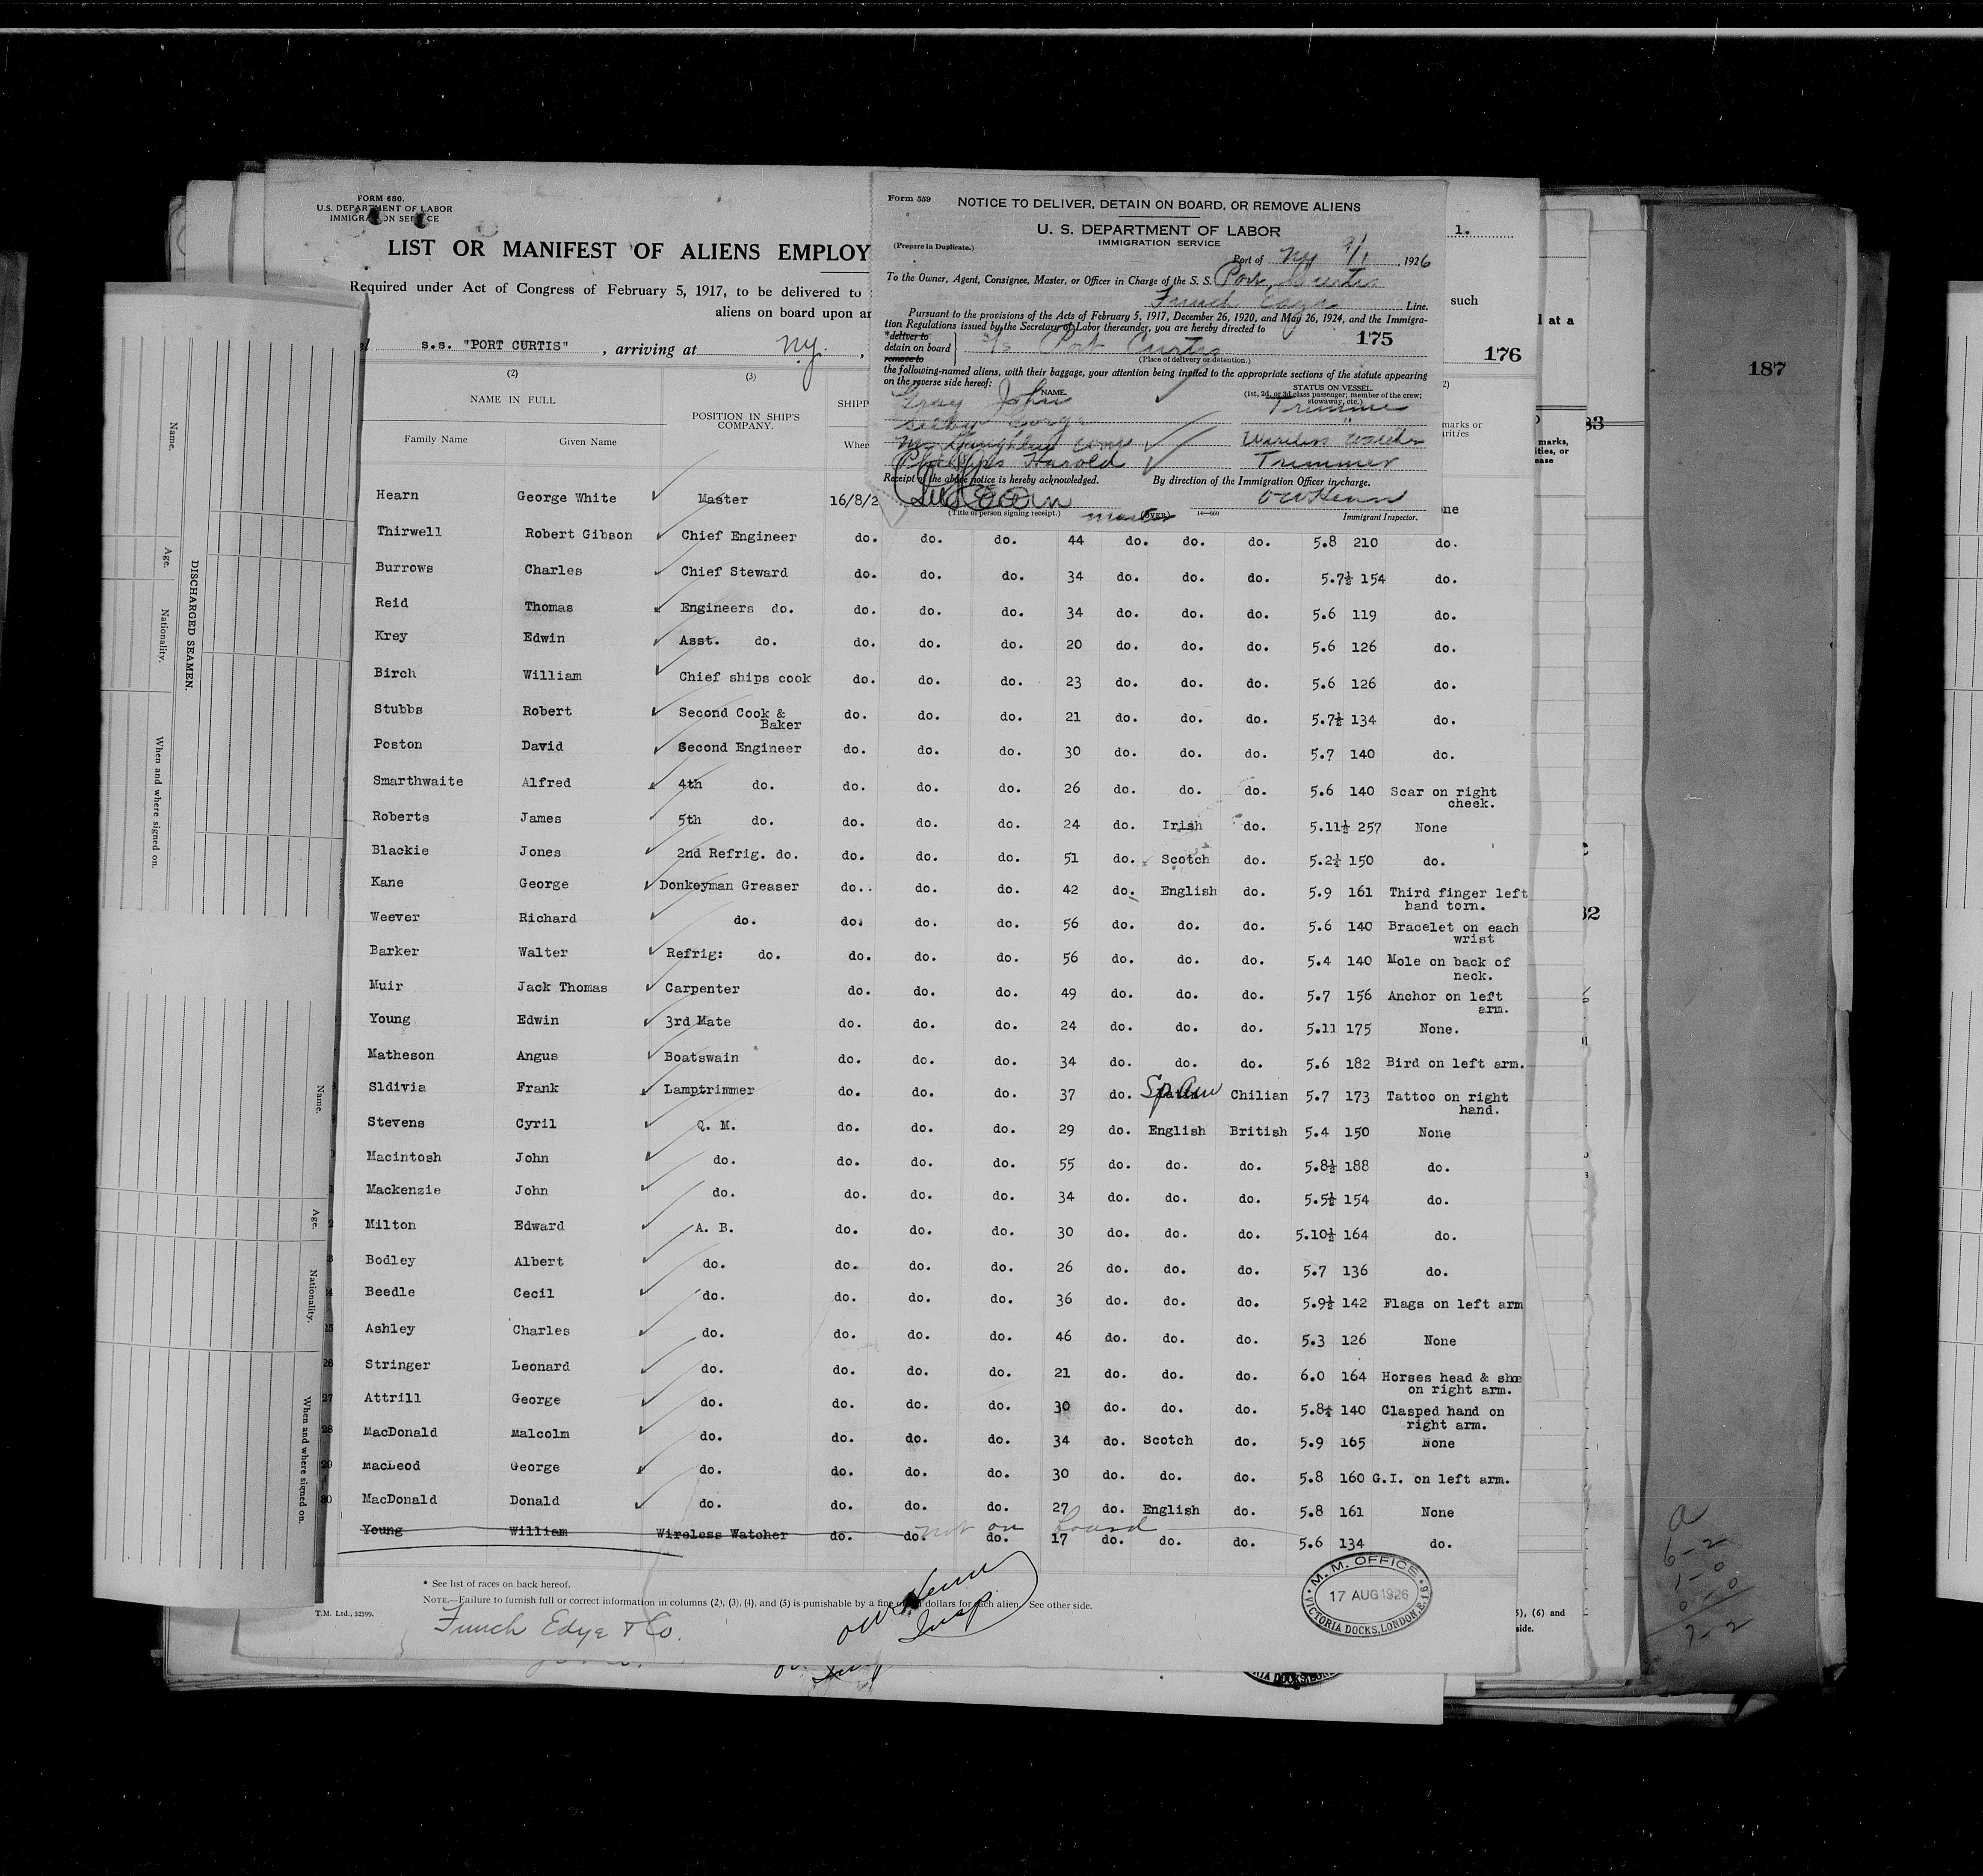 FORM 680.
U.S. DEPARTMENT OF LABOR
IMMIGRATION SERVICE
LIST OR MANIFEST OF ALIENS EMPLOY
Required under Act of Congress of February 5, 1917, to be delivered to
aliens on board upon ar
s.s. "PORT CURTIS" , arriving at N.Y. ,
Form 559
NOTICE TO DELIVER, DETAIN ON BOARD, OR REMOVE ALIENS
U. S. DEPARTMENT OF LABOR
IMMIGRATION SERVICE
(Prepare in Duplicate.)
Port of NY 9/1, 1926
To the Owner, Agent, Consignee, Master, or Officer in Charge of the S. S. Port Curtis
Funch Edye Line.
Pursuant to the provisions of the Acts of February 5, 1917, December 26, 1920, and May 26, 1924, and the Immigra-
tion Regulations issued by the Secretary of Labor thereunder, you are hereby directed to
*deliver to
detain on board
remove to
S/S Port Curtis
175
(Place of delivery or detention.)
the following-named aliens, with their baggage, your attention being invited to the appropriate sections of the statute appearing
on the reverse side hereof:
NAME.
STATUS ON VESSEL
(1st, 2d, or 3d class passenger; member of the crew; stowaway, etc.)
Gray John Trimmer
"
Wireless Watcher
Phillips Harold Trimmer
Receipt of the above notice is hereby acknowledged.
By direction of the Immigration Officer in charge.
(Title of person signing receipt.) master (OVER) 14—669 Immigrant Inspector.
1.
such
176
l at a
187
(2) (3)
NAME IN FULL
POSITION IN SHIP'S COMPANY.
SHIPP
Family Name Given Name
Wher
marks or
Hearn George White Master 16/8/2 ne
Thirwell Robert Gibson Chief Engineer do. do. do. 44 do. do. do. 5.8 210 do.
Burrows Charles Chief Steward do. do. do. 34 do. do. do. 5.7½ 154 do.
Reid Thomas Engineers do. do. do. do. 34 do. do. do. 5.6 119 do.
Krey Edwin Asst. do. do. do. do. 20 do. do. do. 5.6 126 do.
Birch William Chief ships cook do. do. do. 23 do. do. do. 5.6 126 do.
Stubbs Robert Second Cook & Baker do. do. do. 21 do. do. do. 5.7½ 134 do.
Poston David Second Engineer do. do. do. 30 do. do. do. 5.7 140 do.
Smarthwaite Alfred 4th do. do. do. do. 26 do. do. do. 5.6 140 Scar on right cheek.
Roberts James 5th do. do. do. do. 24 do. Irish do. 5.11½ 257 None
Blackie Jones 2nd Refrig. do. do. do. do. 51 do. Scotch do. 5.2¼ 150 do.
Kane George Donkeyman Greaser do. do. do. 42 do. English do. 5.9 161 Third finger left hand torn.
Weever Richard do. do. do. do. 56 do. do. do. 5.6 140 Bracelet on each wrist
Barker Walter Refrig: do. do. do. do. 56 do. do. do. 5.4 140 Mole on back of neck.
Muir Jack Thomas Carpenter do. do. do. 49 do. do. do. 5.7 156 Anchor on left arm.
Young Edwin 3rd Mate do. do. do. 24 do. do. do. 5.11 175 None.
Matheson Angus Boatswain do. do. do. 34 do. do. do. 5.6 182 Bird on left arm.
Sldivia Frank Lamptrimmer do. do. do. 37 do. Chilian 5.7 173 Tattoo on right hand.
Stevens Cyril Q. M. do. do. do. 29 do. English British 5.4 150 None
Macintosh John do. do. do. do. 55 do. do. do. 5.8½ 188 do.
Mackenzie John do. do. do. do. 34 do. do. do. 5.5½ 154 do.
Milton Edward A. B. do. do. do. 30 do. do. do. 5.10½ 164 do.
Bodley Albert do. do. do. do. 26 do. do. do. 5.7 136 do.
Beedle Cecil do. do. do. do. 36 do. do. do. 5.9½ 142 Flags on left arm
25 Ashley Charles do. do. do. do. 46 do. do. do. 5.3 126 None
26 Stringer Leonard do. do. do. do. 21 do. do. do. 6.0 164 Horses head & shoe on right arm.
27 Attrill George do. do. do. do. 30 do. do. do. 5.8¼ 140 Clasped hand on right arm.
28 MacDonald Malcolm do. do. do. do. 34 do. Scotch do. 5.9 165 None
29 MacLeod George do. do. do. do. 30 do. do. do. 5.8 160 G.I. on left arm.
30 MacDonald Donald do. do. do. do. 27 do. English do. 5.8 161 None
Young William Wireless Watcher do. do. do. 17 do. do. do. 5.6 134 do.
not on board
* See list of races on back hereof.
NOTE.—Failure to furnish full or correct information in columns (2), (3), (4), and (5) is punishable by a fine of dollars for each alien. See other side.
T.M. Ltd., 32599.
Funch Edye & Co.
Insp.
M. M. OFFICE
17 AUG 1926
VICTORIA DOCKS, LONDON, E.16
5), (6) and
side.
Name.
Age.
Nationality.
When and where signed on.
DISCHARGED SEAMEN.
Name.
Age.
Nationality.
When and where signed on.